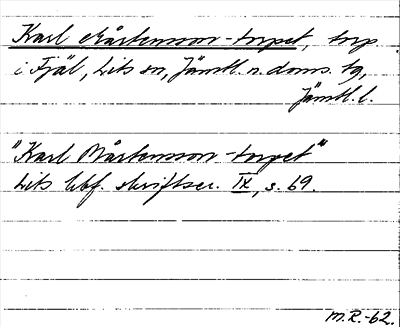 Karl Mårtensson-torpet, torp
i Fjäl, Lits sn, Jämtl. n. doms. tg,
Jämtl. l.
"Karl Mårtensson-torpet"
Lits hbf. skriftser. IX, s. 69.
M.R.-62.